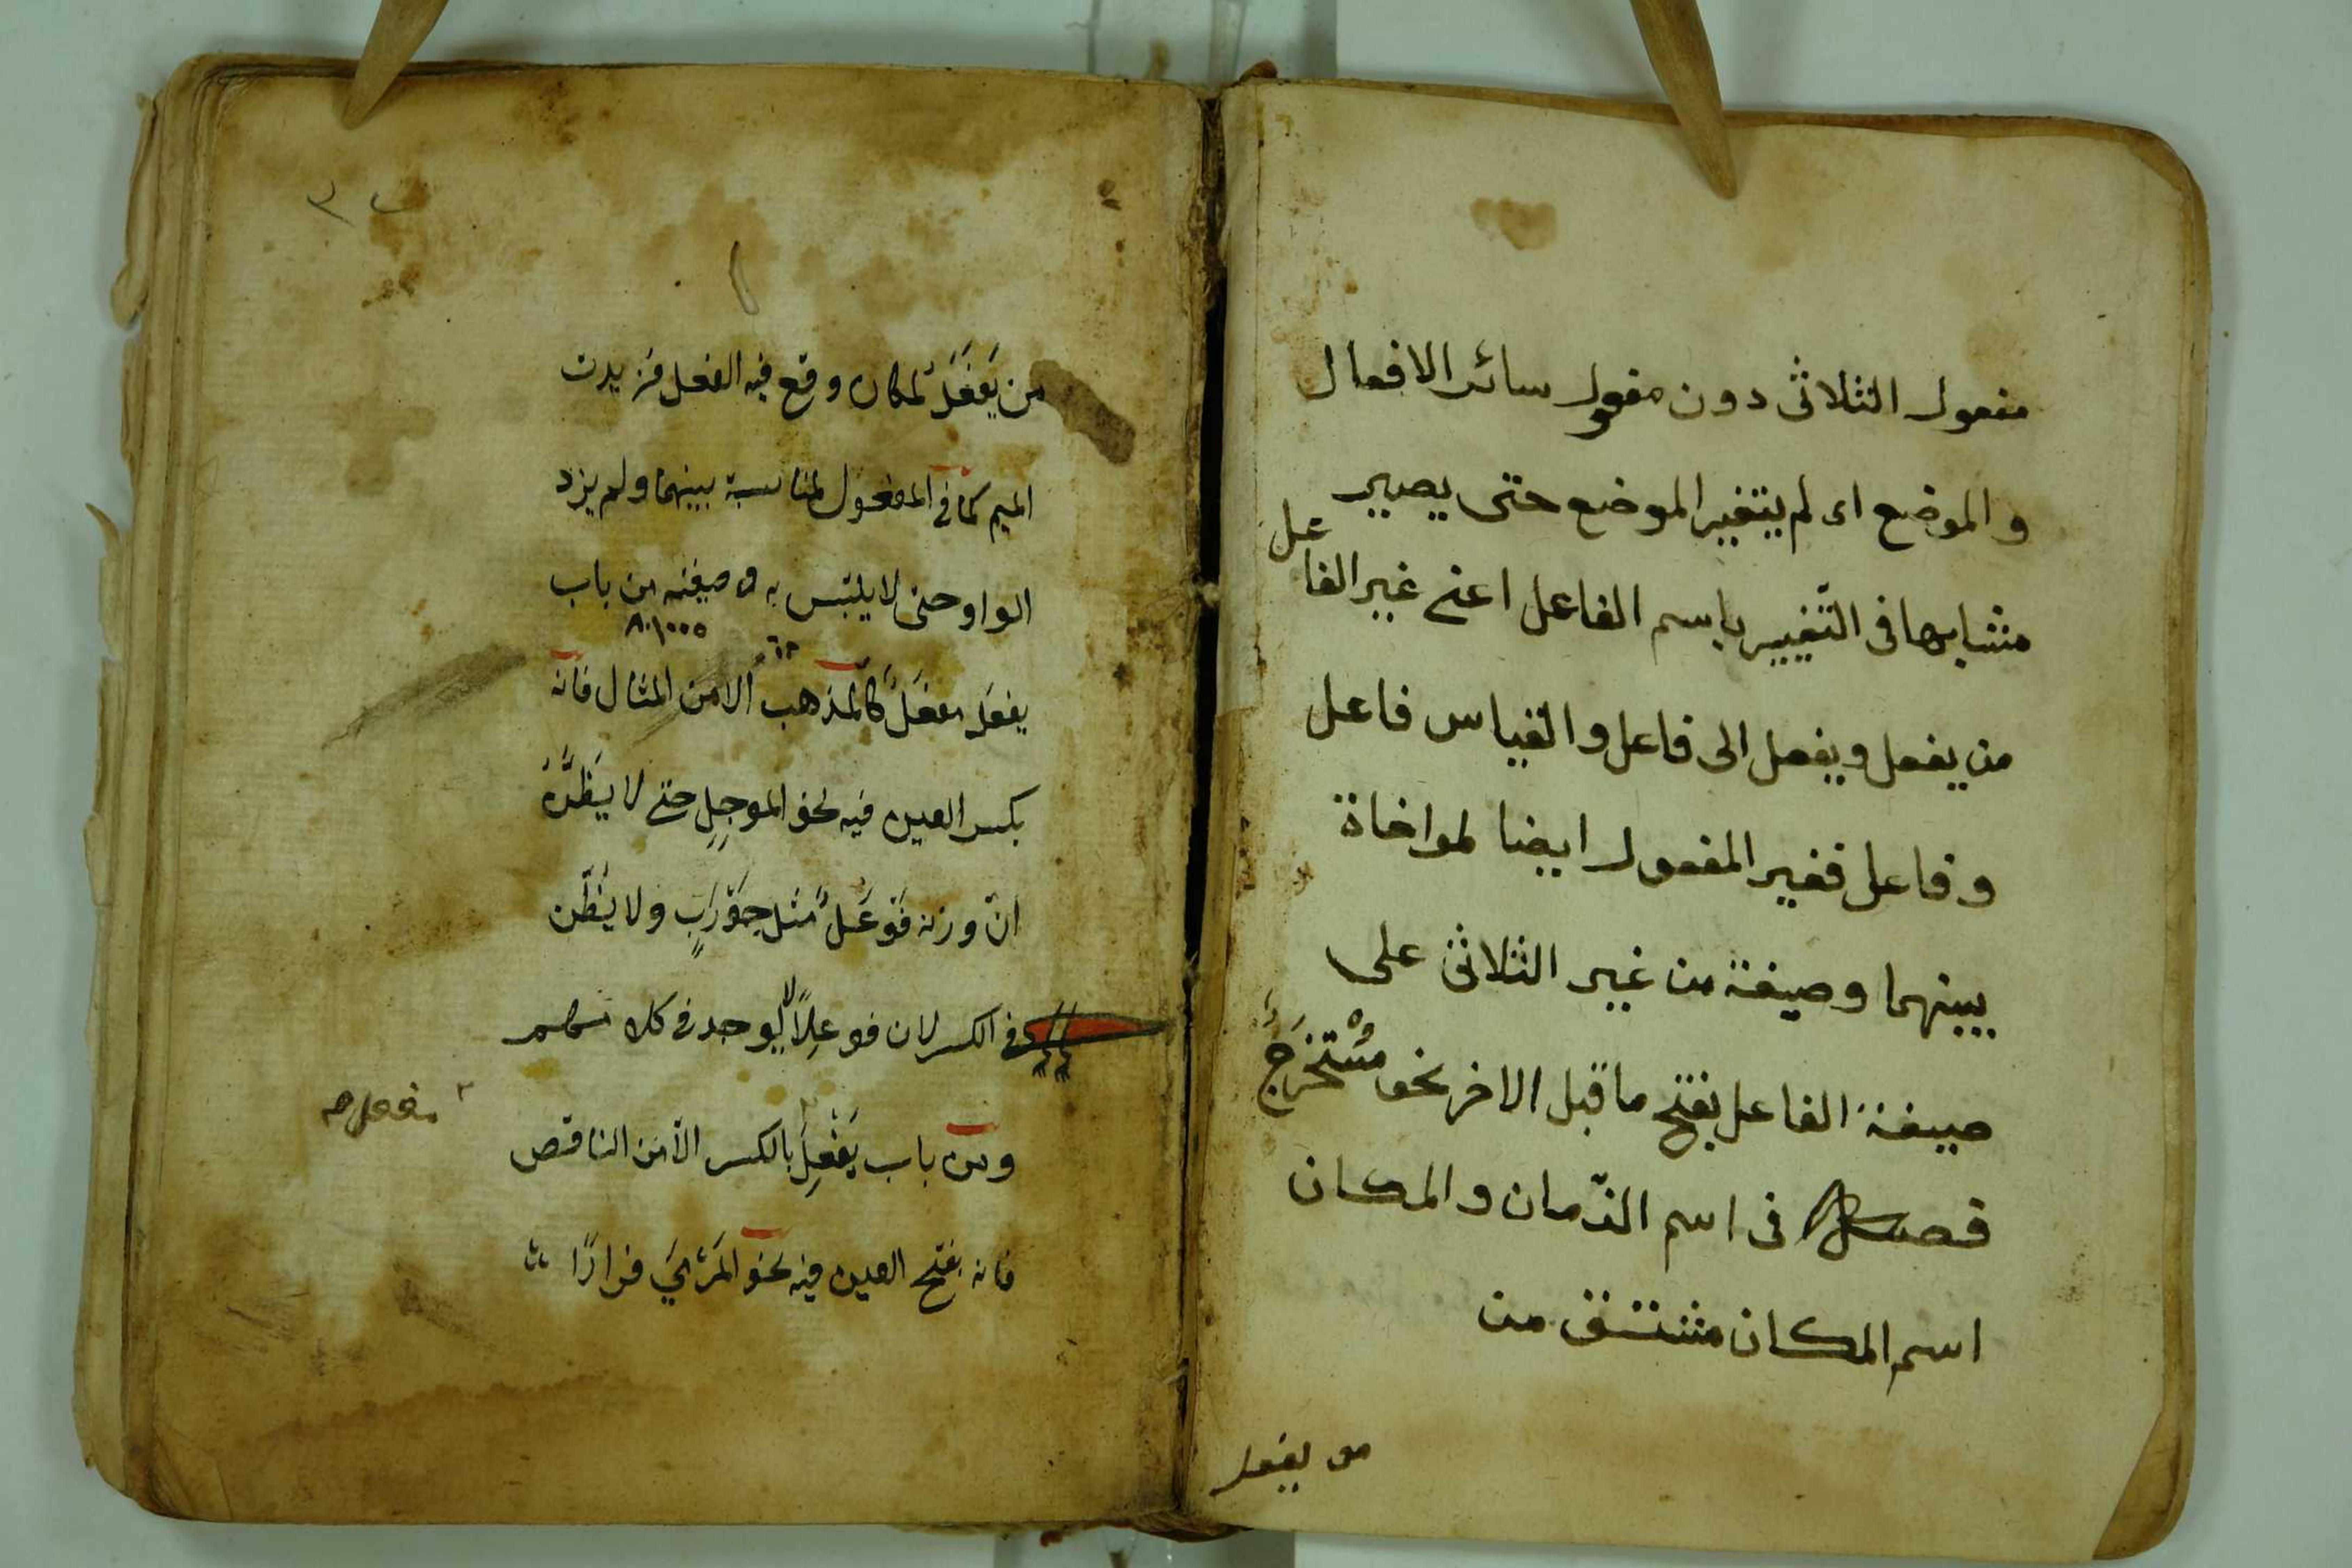 مفعول الثلاثى دون مفعول سائر الافعال
و الموضع اى لم يتغير الموضع حتى يصير
مشابها فى التّغيير باسم الفاعل اعنى غير الفاعل
من يفعل ويفعل الى فاعل والقياس فاعل
و فاعل فغير المفعول ايضا لمواخاة
بينهما وصيغة من غير الثلاثى على
صيغة الفاعل بفتح ما قبل الاخر نحو مُسْتخْرَجٌ
فصل فى اسم الزّمان والمكان
اسم المكان مشتق من
من يفعل
من يَفعَلُ لمكان وقع فيه الفعل فزيدت
الميم كما فى المفعول لمناسبة بينهما ولم يزد
الواو حتى لا يلتبس به وصيغته من باب
٨٠١٠٠٥
يفعَل مفعَلٌ كالمَذهب الا من المثال فانه
بكسر العين فيه نحو الموجِلِ حتى لا يَظُنَّ
انّ وزنه فَوْعَلٌ مثل جَوْرَبٍ ولا يُظّن
فى الكسر لان فوعِلاً لا يوجد فى كلامهم
ومن باب يَفْعِلُ بالكسر الّا من الناقص
مفعل صح
فانه بفتح العين فيه نحو المَرْمَي فرارًا